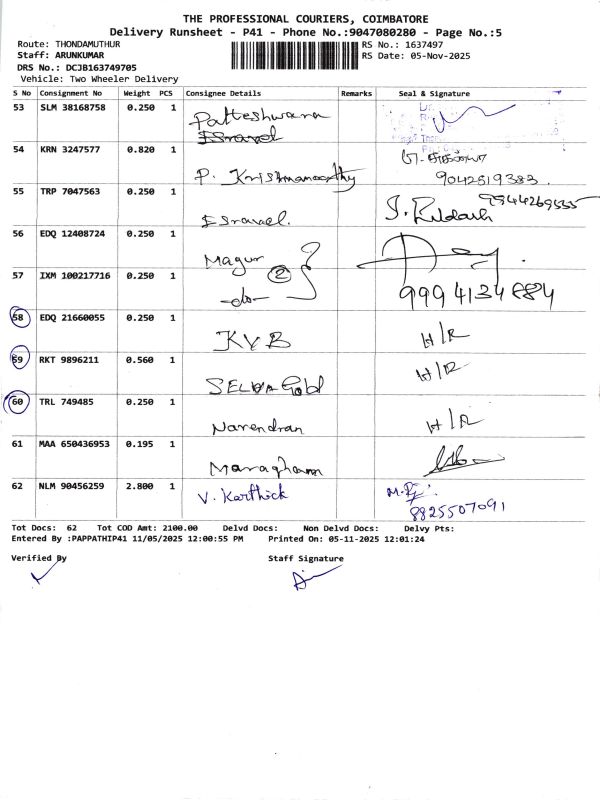 THE PROFESSIONAL COURIERS, COIMBATORE
Delivery Runsheet - P41 - Phone No.:9047080280 - Page No.:5
Route: THONDAMUTHUR RS No.: 1637497
Staff: ARUNKUMAR RS Date: 05-Nov-2025
DRS No.: DCJB163749705
Vehicle: Two Wheeler Delivery
S No Consignment No Weight PCS Consignee Details Remarks Seal & Signature
53 SLM 38168758 0.250 1 Patteshwara
Esravel
54 KRN 3247577 0.820 1 P. Krishnamoorthy
9042519383.
55 TRP 7047563 0.250 1 Esravel. 9944269535
56 EDQ 12408724 0.250 1 Magur
57 IXM 100217716 0.250 1 -do- 2
9994134684
58 EDQ 21660055 0.250 1 KVB H/R
59 RKT 9896211 0.560 1 SELVA Gold H/R
60 TRL 749485 0.250 1 Narendran H/R
61 MAA 650436953 0.195 1
62 NLM 90456259 2.800 1 V. Karthick
8825507091
Tot Docs: 62 Tot COD Amt: 2100.00 Delvd Docs: Non Delvd Docs: Delvy Pts:
Entered By :PAPPATHIP41 11/05/2025 12:00:55 PM Printed On: 05-11-2025 12:01:24
Verified By Staff Signature